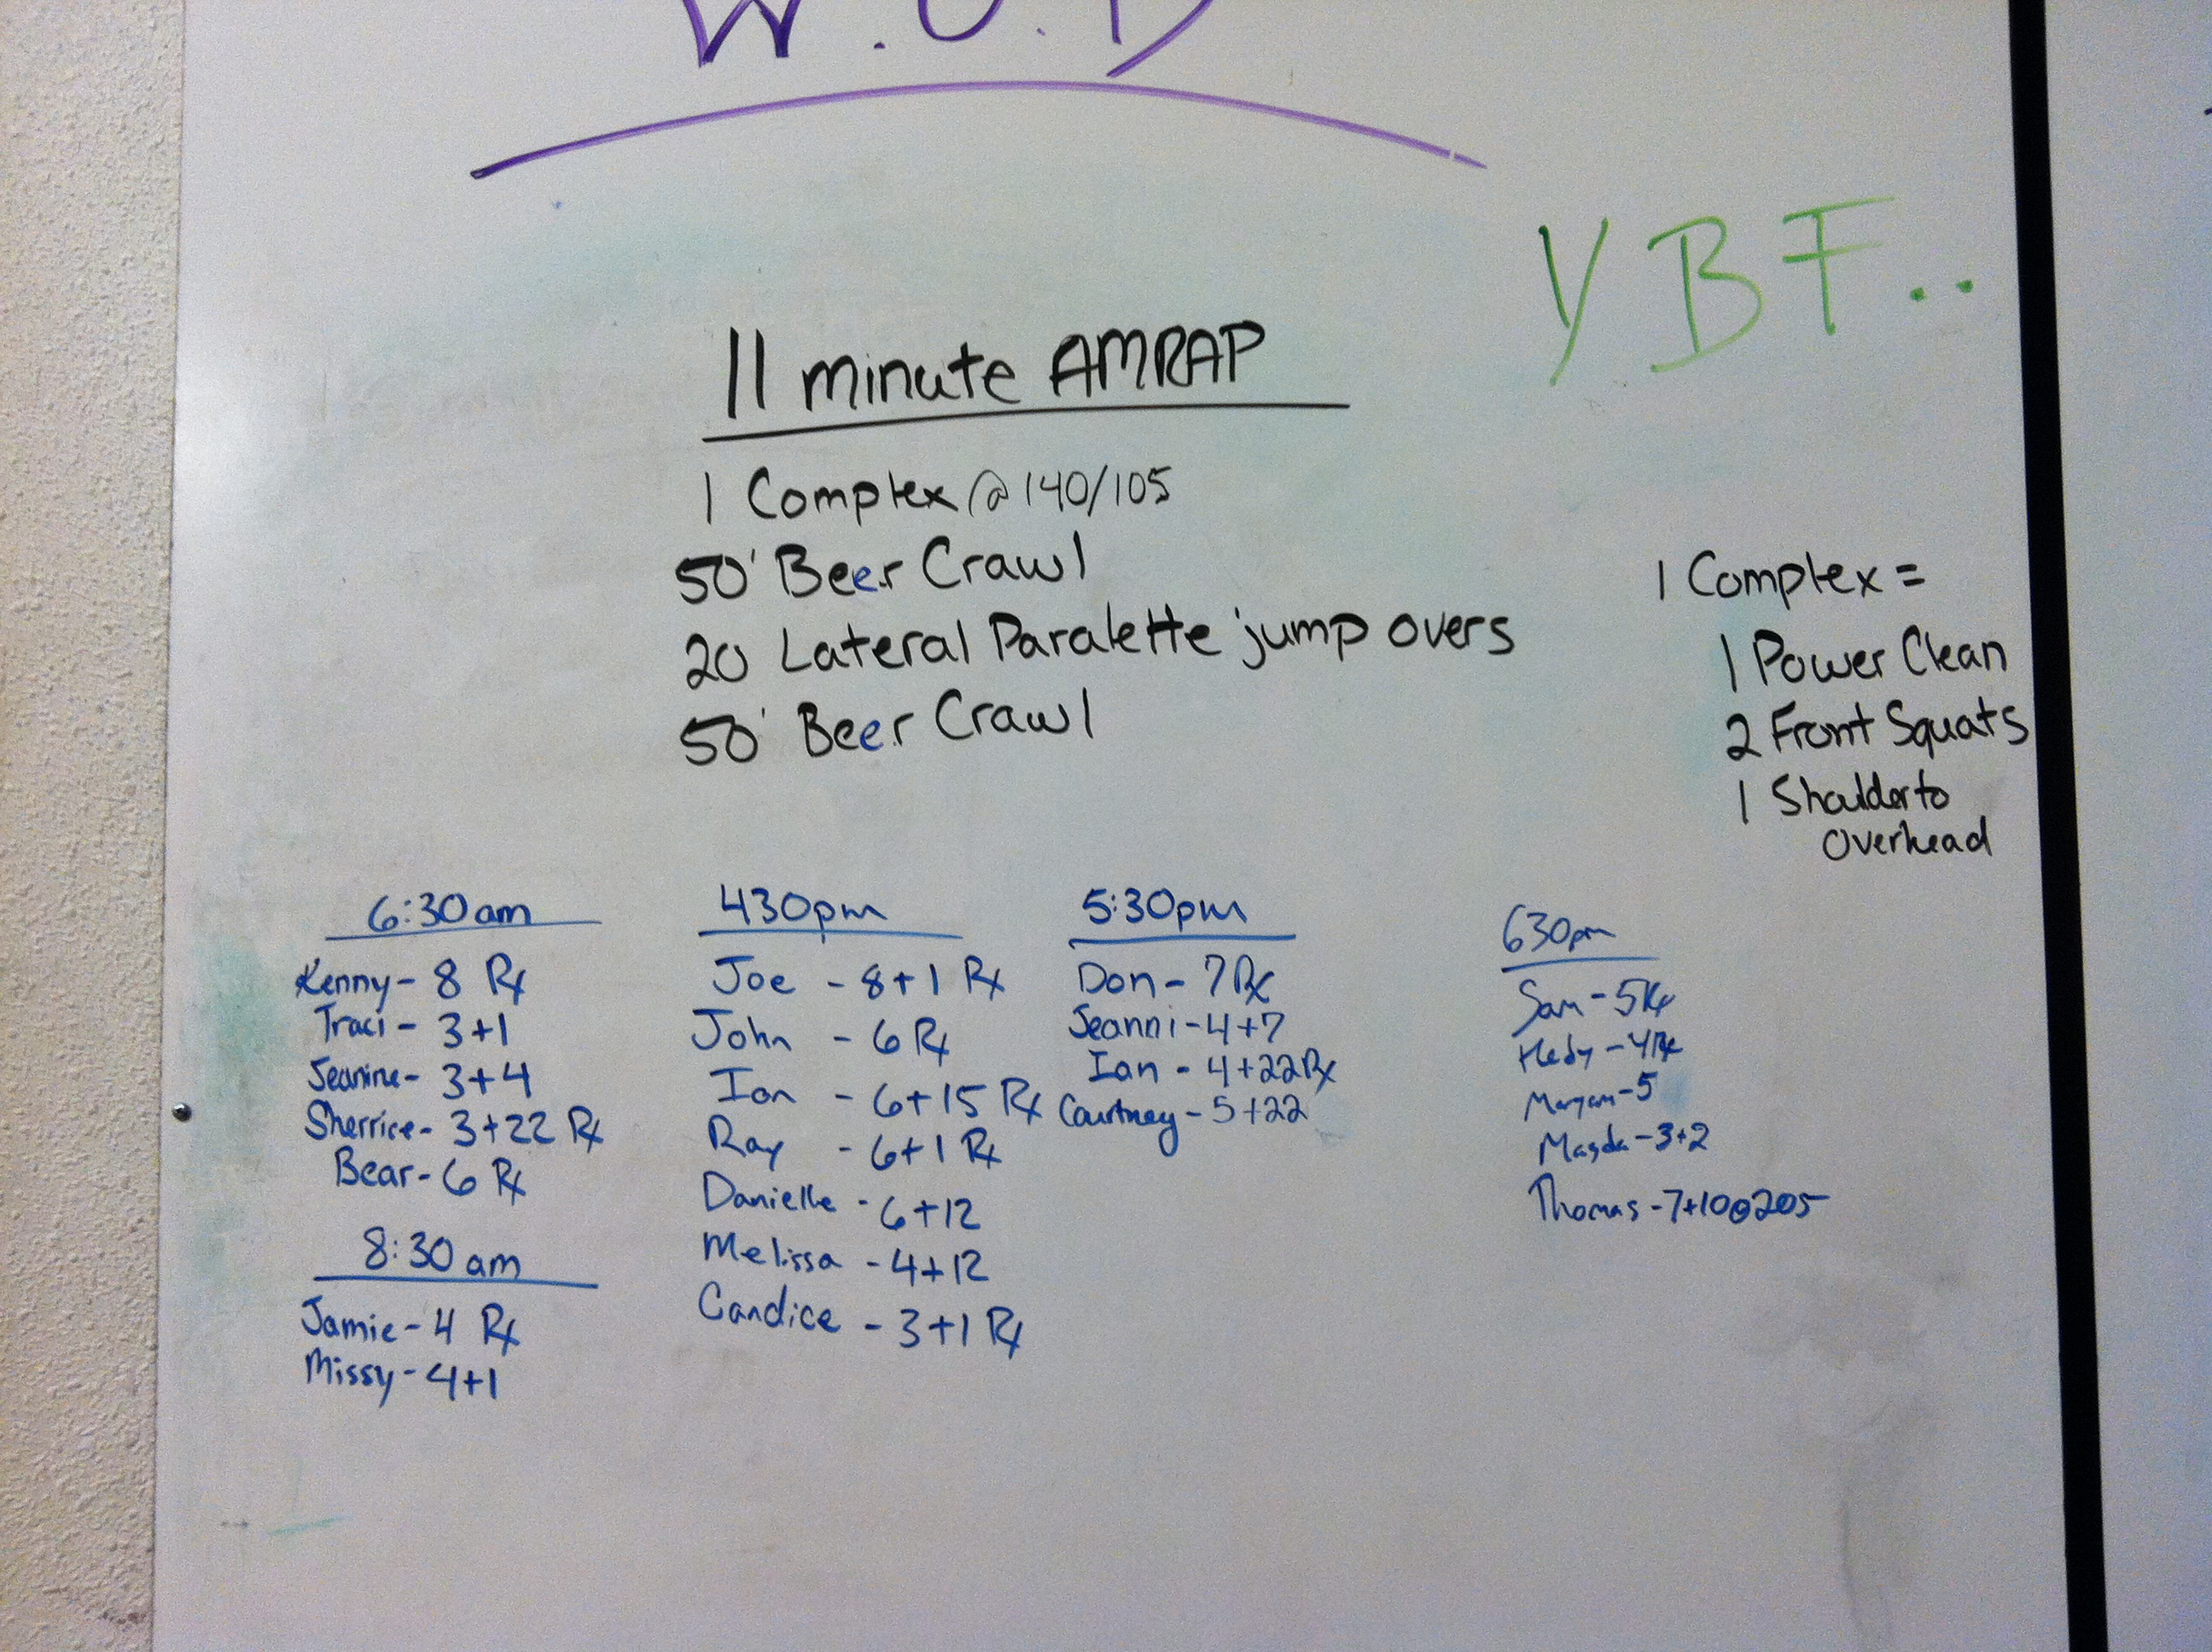 W.O.D
YBF..
11 minute AMRAP
1 Complex @ 140/105
50' Beer Crawl
20 Lateral Paralette jump overs
50' Beer Crawl
1 Complex =
1 Power Clean
2 Front Squats
1 Shoulder to
Overhead
6:30am
Kenny - 8 Rx
Traci - 3+1
Jeanine - 3+4
Sherrice - 3+22 Rx
Bear - 6 Rx
8:30 am
Jamie - 4 Rx
Missy - 4+1
430pm
Joe - 8+1 Rx
John - 6 Rx
Ian - 6+15 Rx
Ray - 6+1 Rx
Danielle - 6+12
Melissa - 4+12
Candice - 3+1 Rx
5:30pm
Don - 7 Rx
Jeanni - 4+7
Ian - 4+22 Rx
Courtney - 5+22
630pm
Sam - 5 Rx
Hedy - 4 Rx
Maryam - 5
Magda - 3+2
Thomas - 7+10@205